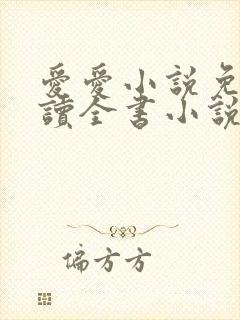 愛愛小說免
讀全書小說
偏方方